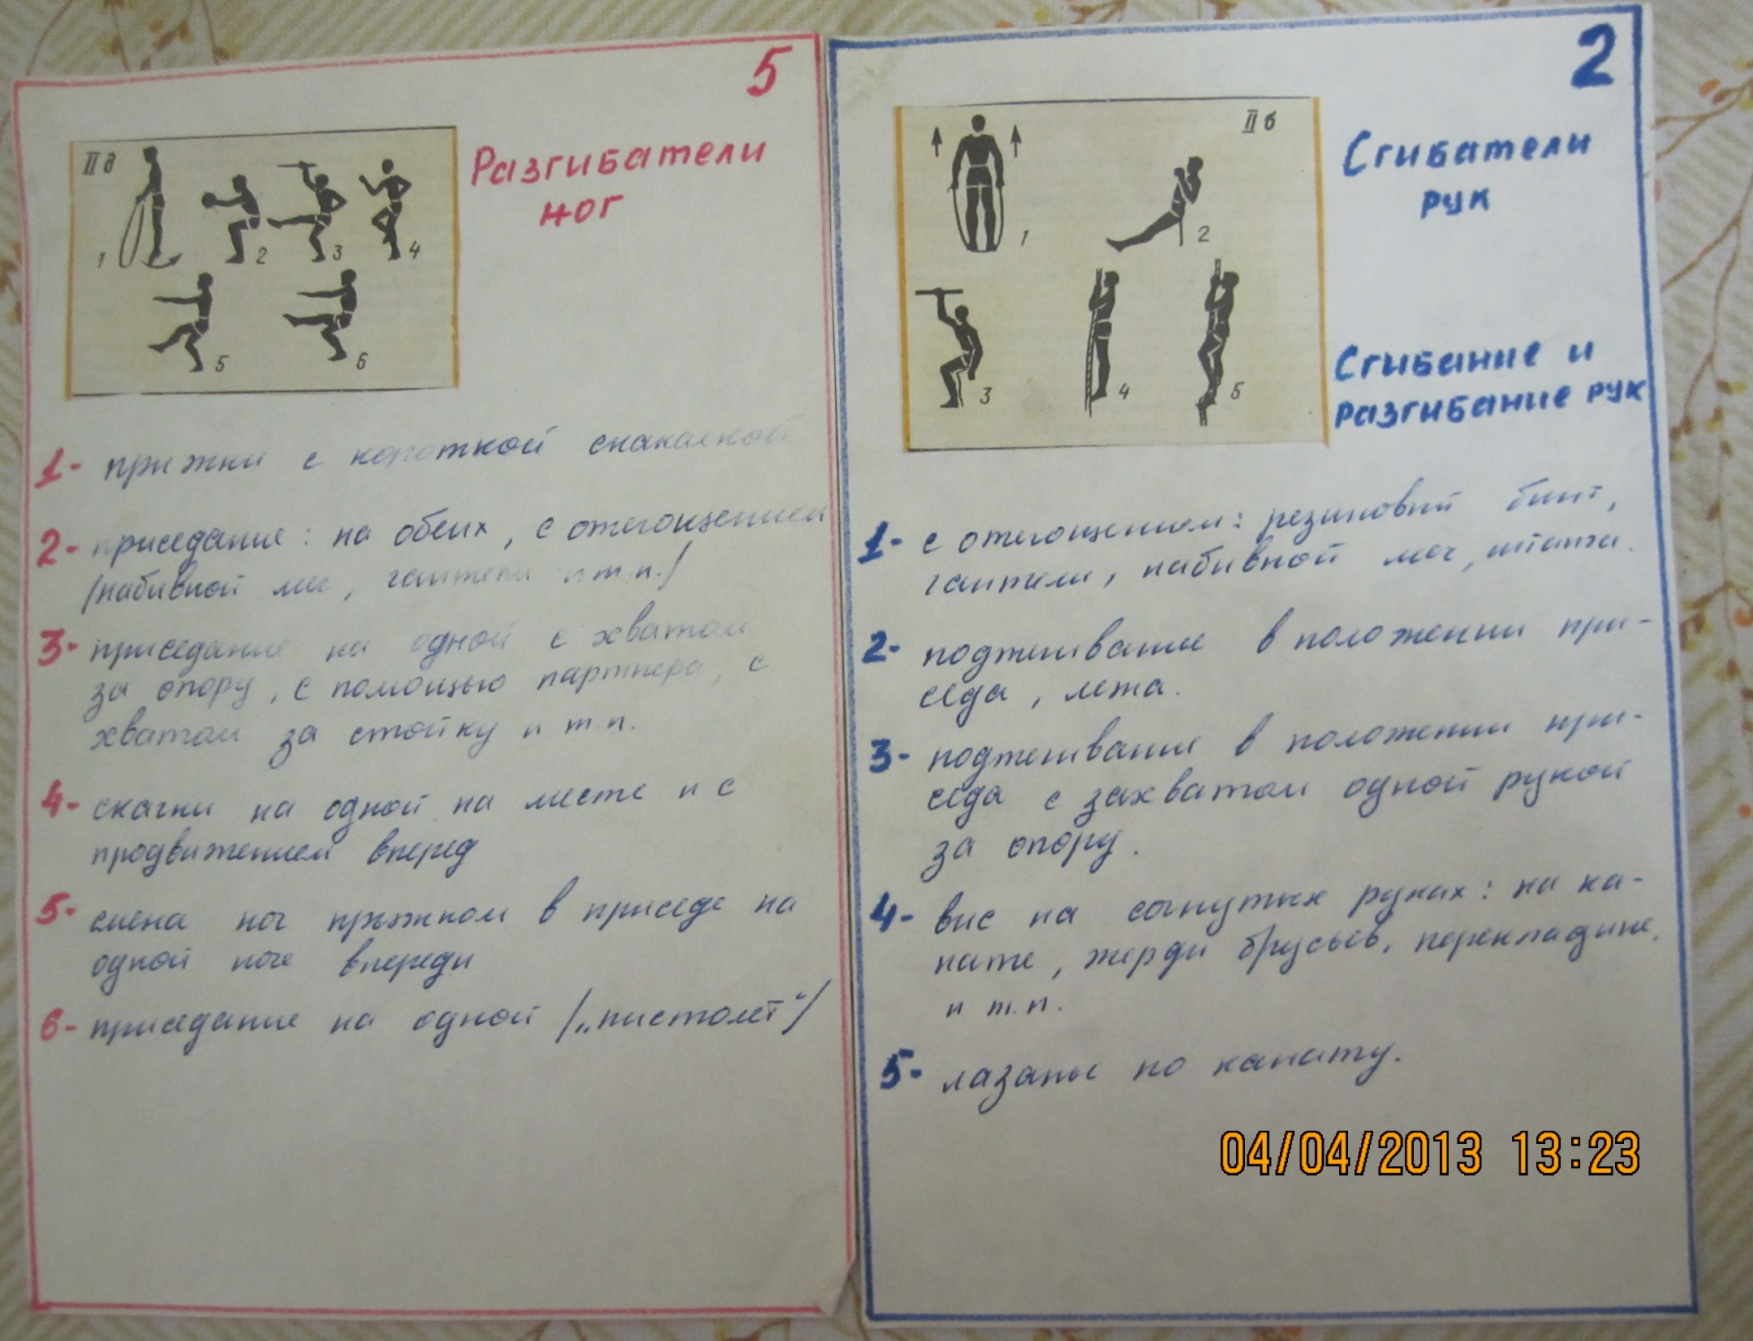 5
II д
1
2
3
4
5
6
Разгибатели
ног
1- прыжки с короткой скакалкой
2- приседание: на обеих, с отягощением
/набивной мяч, гантели и т.п./
3- приседание на одной с хватом
за опору, с помощью партнера, с
хватом за стойку и т.п.
4- скачки на одной на месте и с
продвижением вперед
5- смена ног прыжком в приседе на
одной ноге впереди
6- приседание на одной /„пистолет“/
2
II б
1
2
3
4
5
Сгибатели
рук
Сгибание и
разгибание рук
1- с отягощением: резиновый бинт,
гантели, набивной мяч, штанга.
2- подтягивание в положении при-
седа, лежа.
3- подтягивание в положении при-
седа с захватом одной рукой
за опору.
4- вис на согнутых руках: на ка-
нате, жерди брусьев, перекладине,
и т.п.
5- лазанье по канату.
04/04/2013 13:23